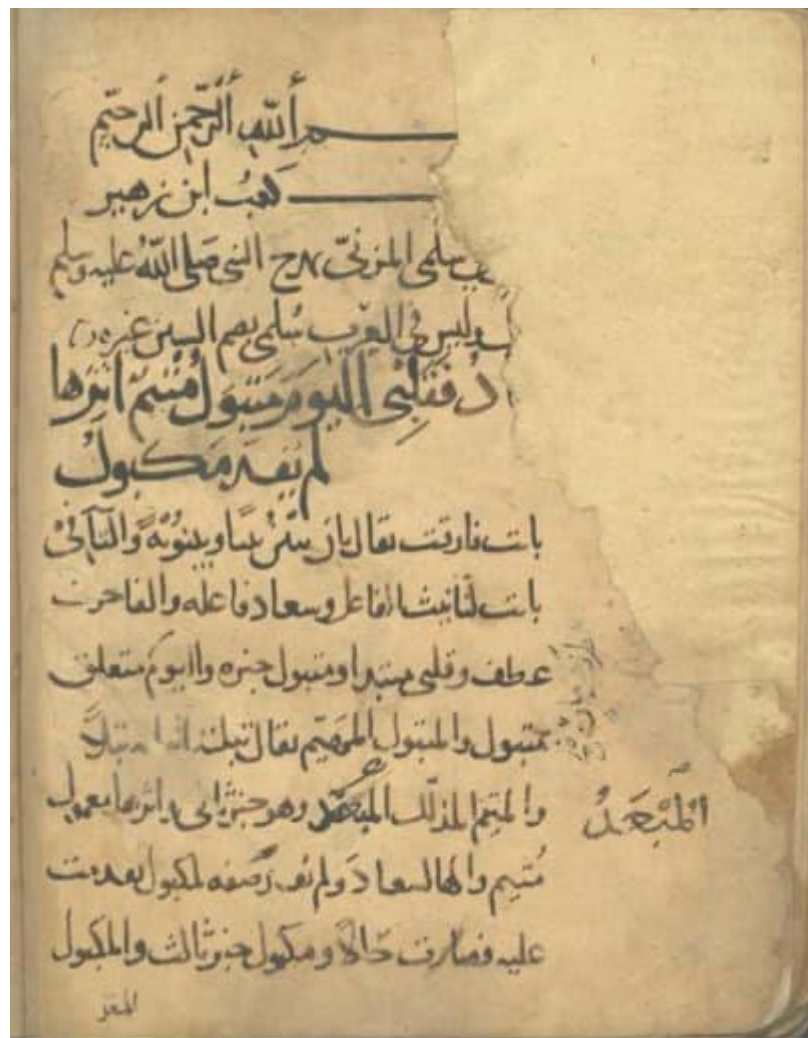 ـم ألله ألرّحمن ألرحيم
كعب ابن زهير
سلمى المزنيّ يمدح النبى صلى الله عليه وسلم
وليس فى العرب سُلمى بضم السين غيره
دُ فقلبى اليوم متبول مُتيّم اثرها
لم يفد مكبول
بانت فارقت يقال بان يبين بينا وبينونة والتآ فى
بانت لتانيث الفاعل وسعاد فاعله والفا حرف
عطف وقلبى مبتدا ومتبول خبره واليوم متعلق
بمتبول والمتبول المهيّم يقال تبلت
والمتيم المذلّل المبعّد وهو خبر ثانى واثرها معمول
مُتيم والها لسعادَ ولم يفد صفه لمكبول تقدمت
عليه فصارت حالاً ومكبول خبر ثالث والمكبول
المُبْعَدُ
المقيد